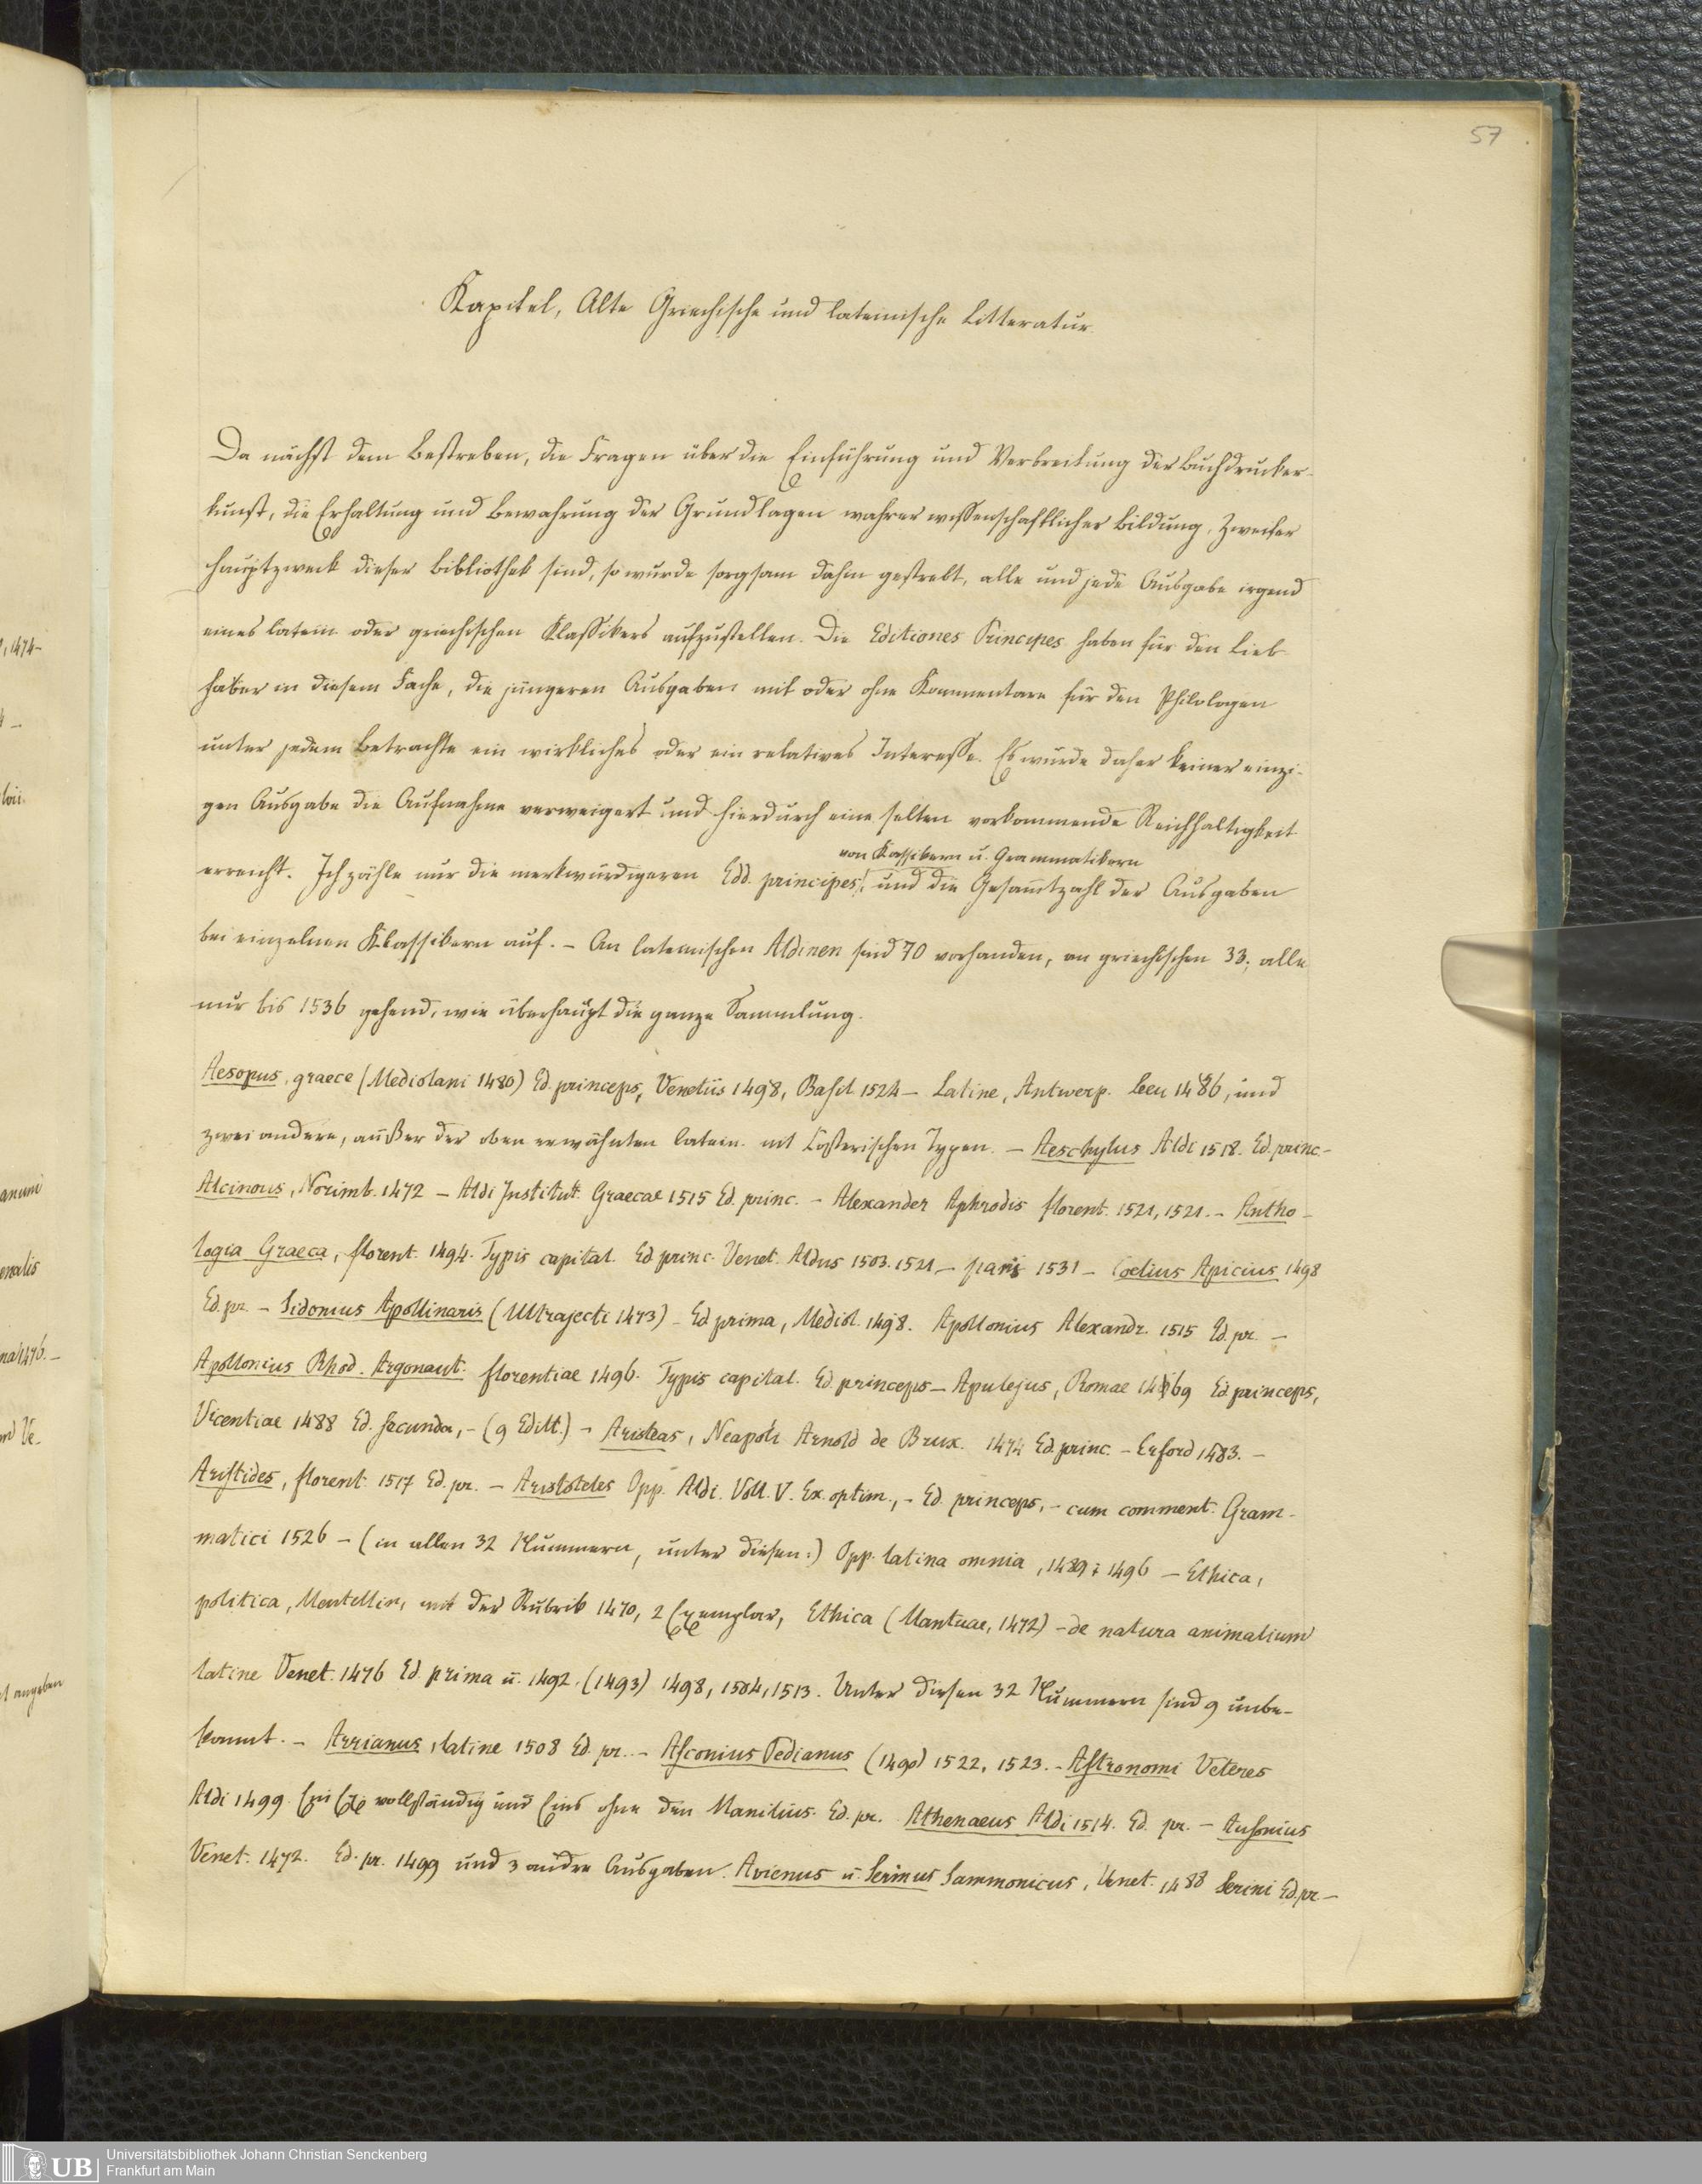 57
Kapitel, Alte Griechische und lateinische Litteratur
Da nächst dem Bestreben, die Fragen über die Einführung und Verbreitung der Buchdrucker-
kunst, die Erhaltung und Bewahrung der Grundlagen wahrer wissenschaftlicher Bildung, Zweiter
Hauptzweck dieser Bibliothek sind, so wurde sorgsam dahin gestrebt, alle und jede Ausgabe irgend
eines latein oder griechischen Klassikers aufzustellen. Die Editiones Principes haben für den Lieb-
haber in diesem Fache, die jüngeren Ausgaben mit oder ohne Kommentare für den Philologen
unter jedem Betrachte ein wirkliches oder ein relatives Interesse. Es wurde daher keiner einzi-
gen Ausgabe die Aufnahme verweigert und hierdurch eine selten vorkommende Reichhaltigkeit
von Klassikern u. Grammatikern
erreicht. Ich zähle nur die merkwürdigeren Edd. principes, und die Gesamtzahl der Ausgaben
bei einzelnen Klassikern auf. – An lateinischen Aldinen sind 70 vorhanden, an griechischen 33; alle
nur bis 1536 gehend, wie überhaupt die ganze Sammlung.
Aesopus, graece (Mediolani 1480) Ed. princeps, Venetiis 1498, Basil. 1524 – Latine, Antwerp. Leeu 1486, und
zwei andere, außer der oben erwähnten latein. mit Costerischen Typen. – Aeschylus Aldi 1518. Ed. princ. –
Alcinous, Norimb. 1472 – Aldi Institutt. Graecae 1515 Ed. princ. – Alexander Aphrodis florent. 1521, 1521. – Antho-
logia Graeca, florent. 1494. Typis capital. Ed princ. Venet. Aldus 1503. 1521 – paris 1531 – Coelius Apicius 1498
Ed. pr. – Sidonius Apollinaris (Ultrajecti 1473) – Ed prima, Mediol. 1498. Apollonius Alexandr. 1515 Ed. pr. –
Apollonius Rhod. Argonaut. florentiae 1496. Typis capital. Ed. princeps – Apulejus, Romae 1469 Ed princeps,
Vicentiae 1488 Ed. secunda, – (9 Editt.) – Aristeas, Neapoli Arnold de Brux. 1474 Ed. princ. – Erford 1483. –
Aristides, florent. 1517 Ed. pr. – Aristoteles Opp. Aldi. Voll. V. Ex. optim., – Ed. princeps, – cum comment. Gram-
matici 1526 – (in allen 32 Nummern, unter diesen:) Opp. latina omnia, 1489 i 1496 – Ethica,
politica, Mentellin, mit der Rubrik 1470, 2 Exemplar, Ethica (Mantuae, 1472) – de natura animalium
latine Venet. 1476 Ed. prima u. 1492, (1493) 1498, 1504, 1513. Unter diesen 32 Nummern sind 9 unbe-
kannt. – Arrianus, latine 1508 Ed. pr. – Asconius Pedianus (1490) 1522, 1523. – Astronomi Veteres
Aldi 1499. vollständig und Eins ohne den Manilius. Ed. pr. Athenaeus Aldi 1514. Ed. pr. – Ausonius
Venet. 1472. Ed. pr. 1499 und 3 andre Ausgaben. Avienus u. Serinus Sammonicus, Venet. 1488 Serini Ed. pr. –
, 1474 –
anum
enalis
na 1476. –
rd Ve-
angeben
UB
Universitätsbibliothek Johann Christian Senckenberg
Frankfurt am Main